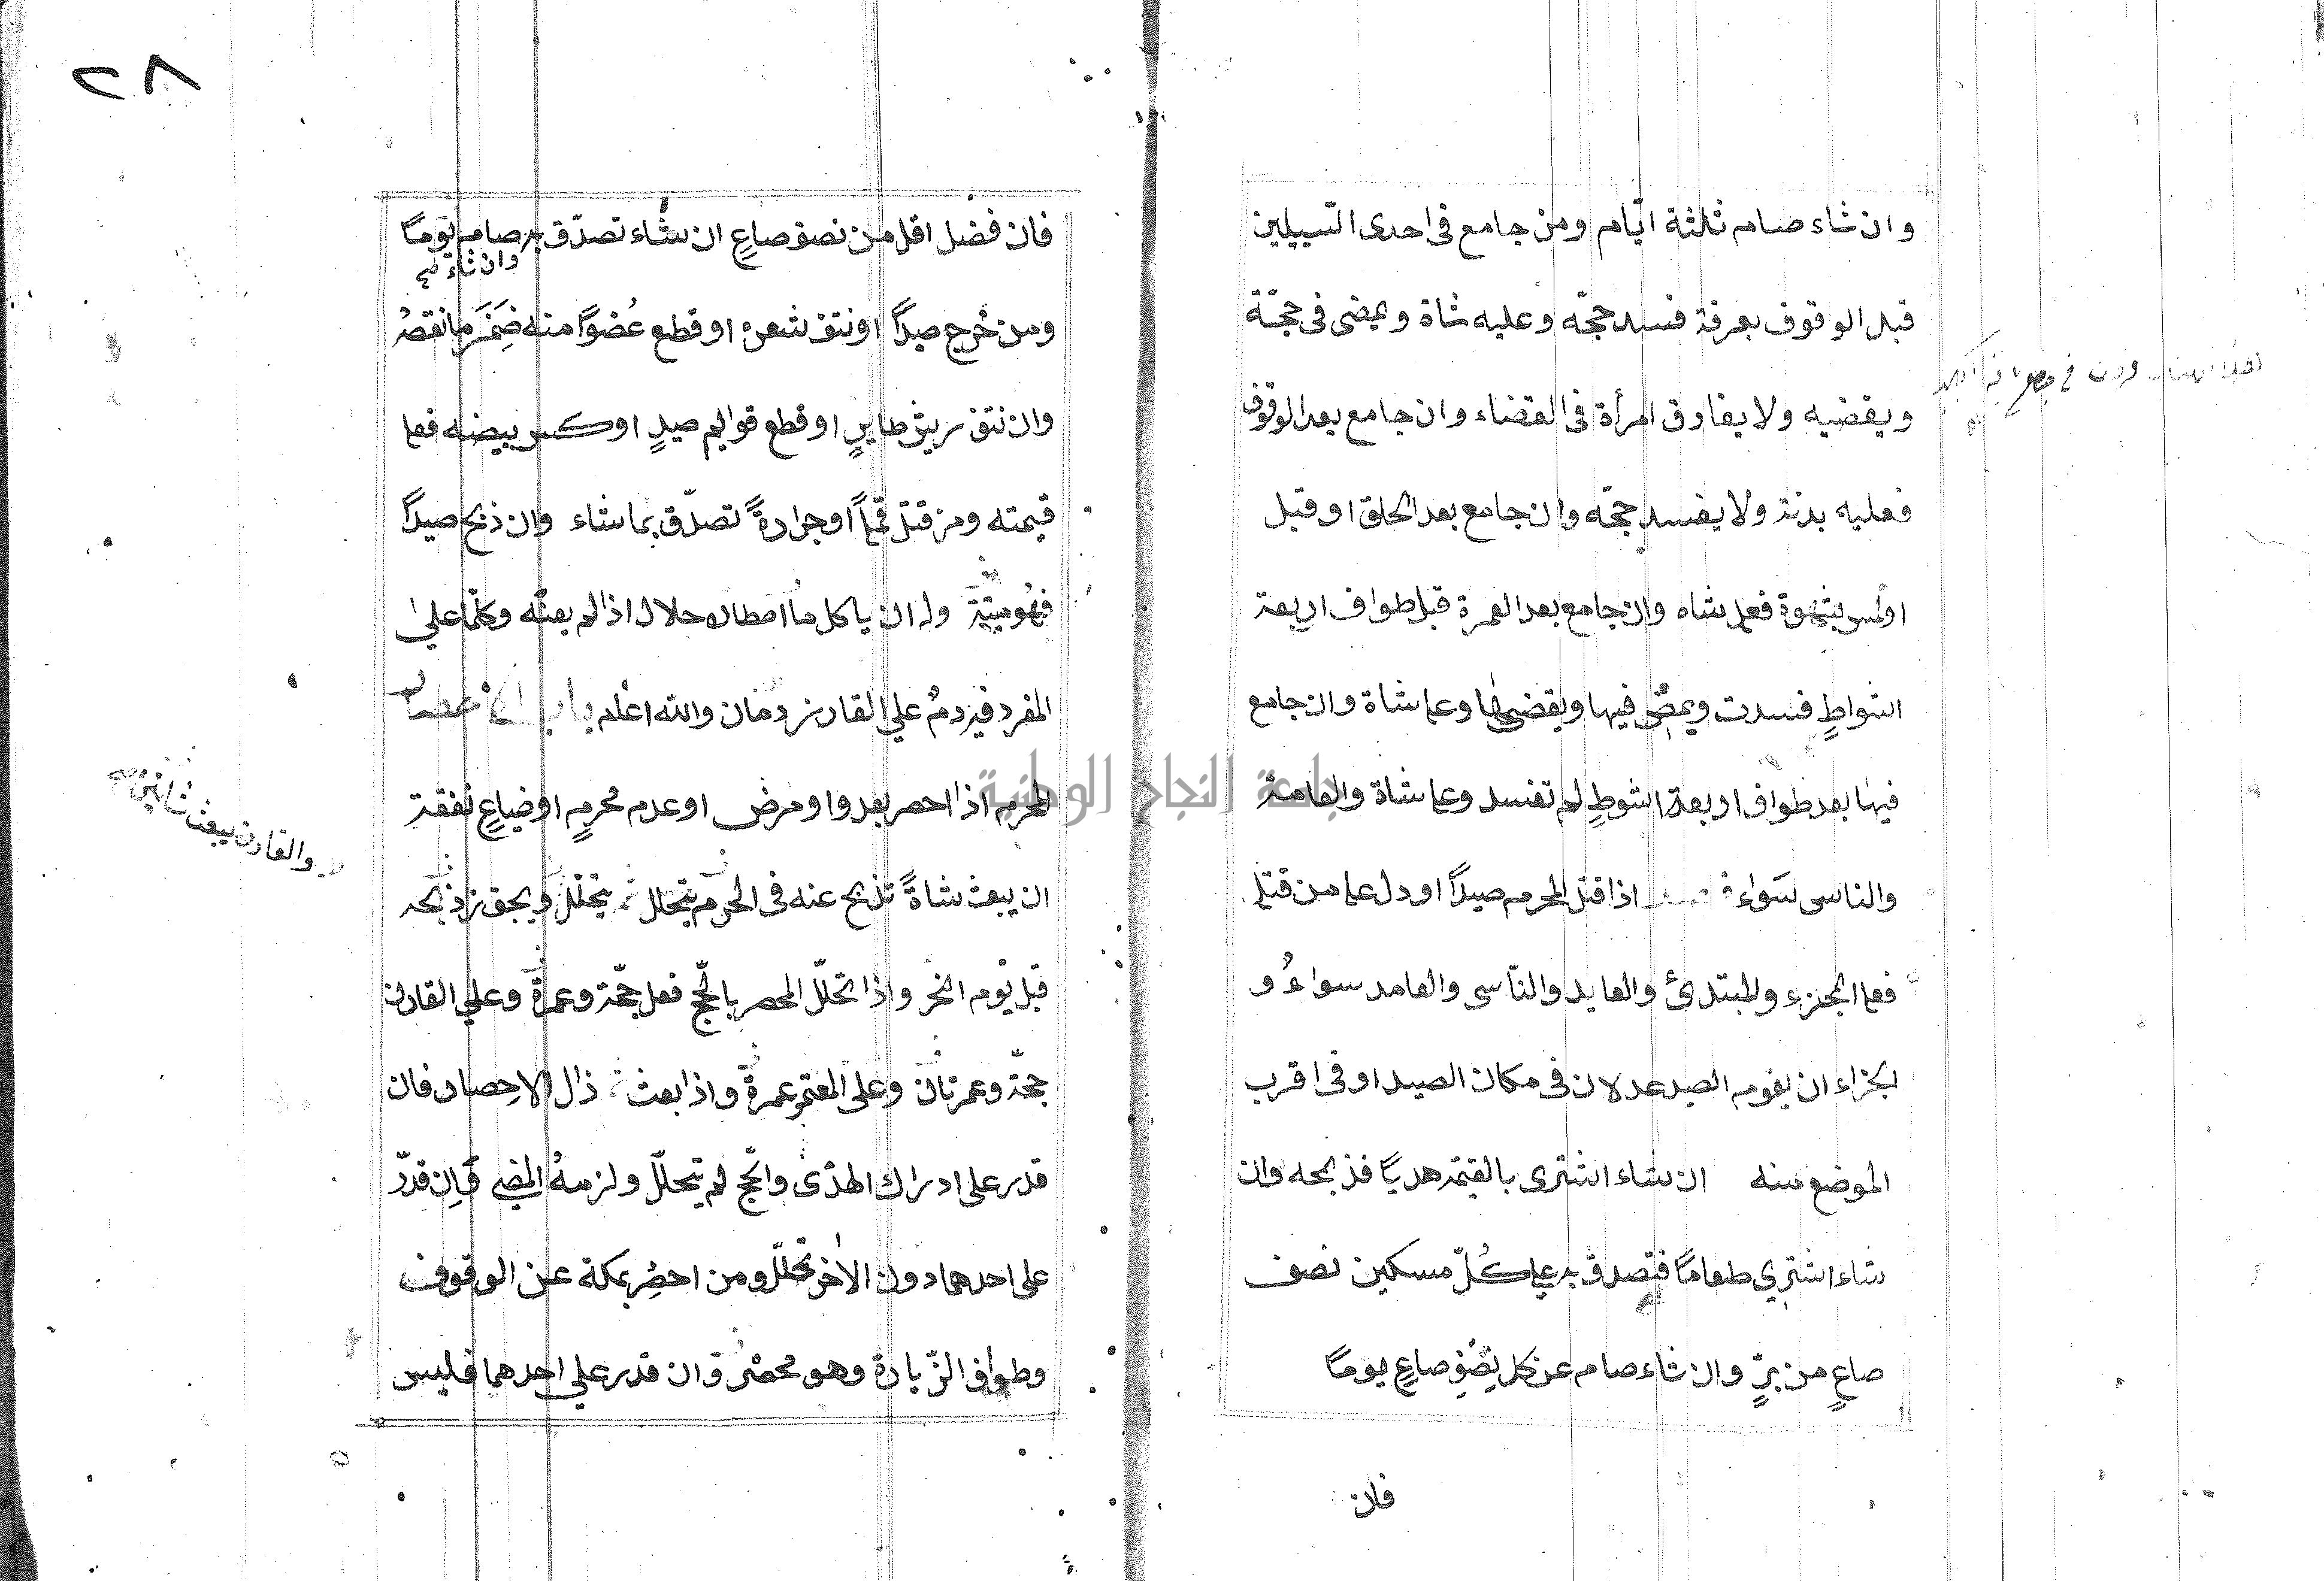 وان شاء صام ثلثة ايّام ومن جامع فى احدى السّبيلين
قبل الوقوف بعرفة فسد حجّه وعليه شاة ويمضى فى حجّة
ويقضيه ولا يفارق امرأة فى القضاء وان جامع بعد الوقوف
فعليه بدنة ولا يفسد حجّه وان جامع بعد الحلق او قبل
اولمس بشهوة فعليه شاه وان جامع بعد العمرة قبل طواف اربعة
اشواطٍ فسدت ويمضى فيها ويقضيها وعليه شاة وان جامع
فيها بعد طواف اربعة اشوطٍ لم تفسد وعليه شاة والعامد
والناسى سَواء اذا قتل المحرم صيداً او دل عليه من قتله
فعليه الجزء والمبتدئ والعايد والنّاسى والعامد سواءُ و
الجزاء ان يقومه الصيد عدلان فى مكان الصيد او فى اقرب
الموضع منه ان شاء اشترى بالقيمة هدياً فذبحه وان
شاء اشتري طعاماً فتصدق به علي كُلّ مسكين نصف
صاعٍ من برٍّ وان شاء صام عن كل نصفِ صاعٍ يوماً
فان
٢٨
فان فضل اقل من نصف صاعٍ ان شاء تصدّق به صامه يوماً
وان شاء صح
ومن خرج صيداً او نتف شعره او قطع عُضواً منه ضَمَنَ ما نقصهُ
وان نتف ريش طايرٍ او قطع قوايم صيدٍ او كسر بيضه فعليه
قيمته ومن قتل قملاً او جرادةً تصدّق بما شاء وان ذبح صيداً
فهُو ميتة وله ان ياكل ما اصطاده حلال اذا لم يعنه وكلّما علي
المفرد فيه دمٌ علي القارن دمان والله اعلم باب
المحرم اذا احصر بعدو او مرض او عدم محرمٍ او ضياعٍ نفقة
ان يبعث شاةً تذبح عنه فى الحرم يتحلل ويجوز ذبحه
قبل يوم النحر واذا تحلّل المحصر بالحجّ فعليه حجّة وعمرة وعلي القارن
حجّة وعمرتان وعلى المعتمر عمرة واذا بعث ذال الاحصار فان
قدر على ادراك الهدْى والحج لم يتحلّل ولزمهُ المضي وَان قدّر
على احدهما دون الاخر تحلّل ومن احصِر بمكة عن الوقوف
وطواف الزّيارة وهو محصر وان قدر علي احدهما فليس
والقارن يبعث شاتين صح
جامعة النجاح الوطنية